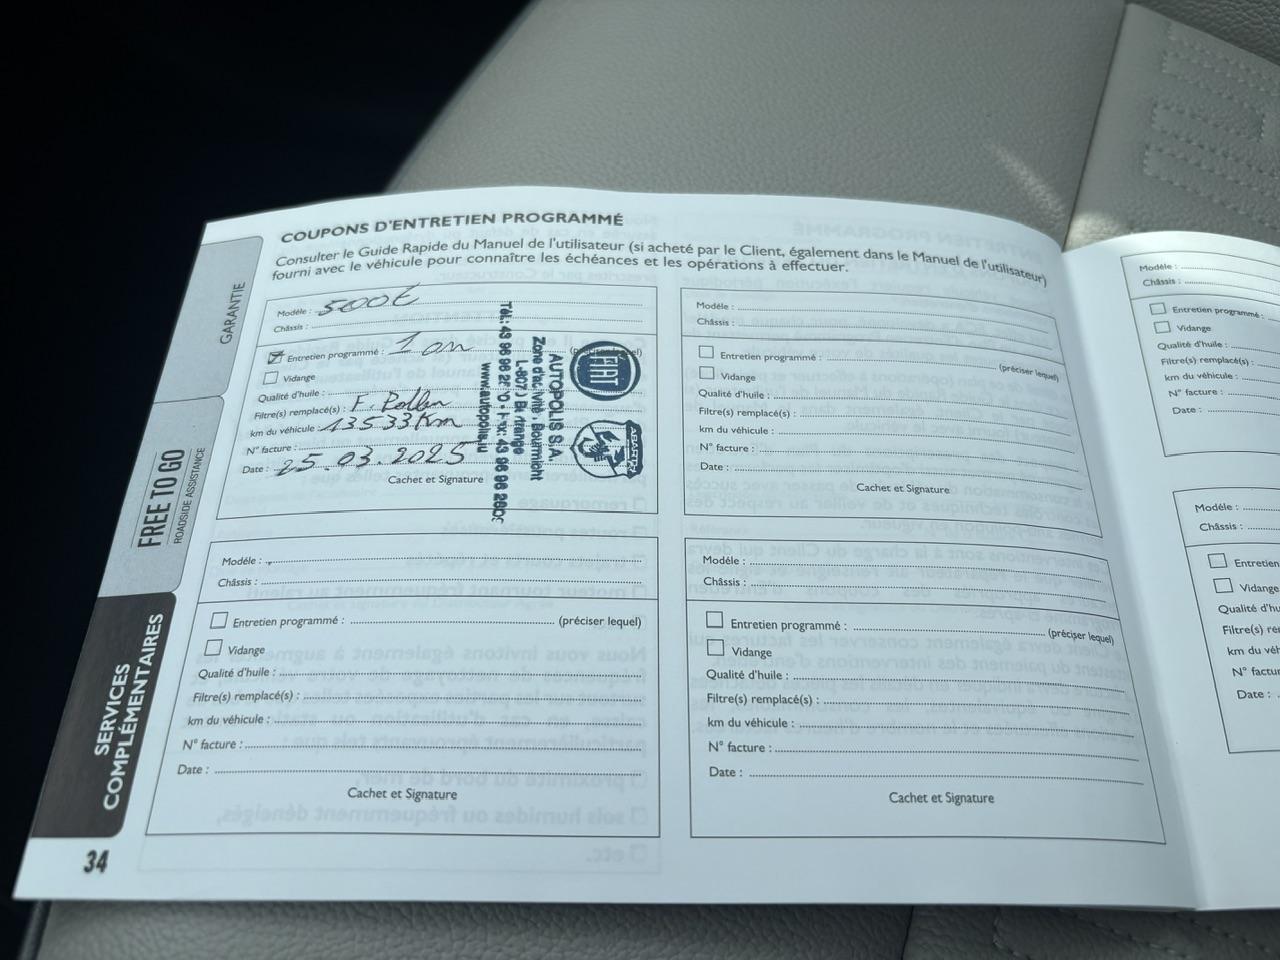 COUPONS D'ENTRETIEN PROGRAMMÉ
Consulter le Guide Rapide du Manuel de l'utilisateur (si acheté par le Client, également dans le Manuel de l'utilisateur)
fourni avec le véhicule pour connaître les échéances et les opérations à effectuer.
GARANTIE
FREE TO GO
ROADSIDE ASSISTANCE
SERVICES
COMPLÉMENTAIRES
34
Modèle : 500E
Châssis :
Entretien programmé : 1 an (préciser lequel)
Vidange
Qualité d'huile :
Filtre(s) remplacé(s) : F. Pollen
km du véhicule : 13533 Km
N° facture :
Date : 25.03.2025
Cachet et Signature
FIAT
ABARTH
AUTOPOLIS S.A.
Zone d'activité Bourmicht
Bertrange
www.autopolis.lu
Modèle :
Châssis :
Entretien programmé : (préciser lequel)
Vidange
Qualité d'huile :
Filtre(s) remplacé(s) :
km du véhicule :
N° facture :
Date :
Cachet et Signature
Modèle :
Châssis :
Entretien programmé : (préciser lequel)
Vidange
Qualité d'huile :
Filtre(s) remplacé(s) :
km du véhicule :
N° facture :
Date :
Cachet et Signature
Modèle :
Châssis :
Entretien programmé : (préciser lequel)
Vidange
Qualité d'huile :
Filtre(s) remplacé(s) :
km du véhicule :
N° facture :
Date :
Cachet et Signature
Modèle :
Châssis :
Entretien programmé :
Vidange
Qualité d'huile :
Filtre(s) remplacé(s) :
km du véhicule :
N° facture :
Date :
Modèle :
Châssis :
Entretien
Vidange
Qualité d'hu
Filtre(s) re
km du véh
N° factur
Date :